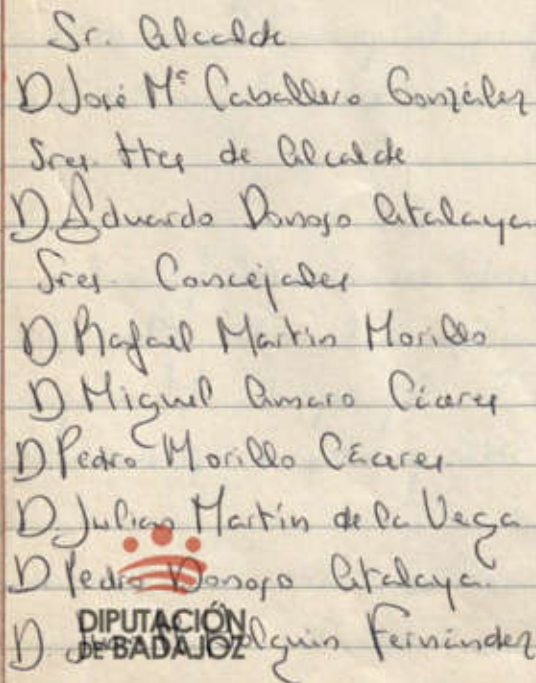 Sr. Alcalde
D José Mª Caballero González
Sres ttes de Alcalde
D Eduardo Donoso Atalaya
Sres. Concejales
D Rafael Martin Morillo
D Miguel Amaro Cáceres
D Pedro Morillo Cáceres
D. Julian Martín de la Vega
D Pedro Donoso Atalaya.
DIPUTACIÓN
DE BADAJOZ
D Holguin Fernández